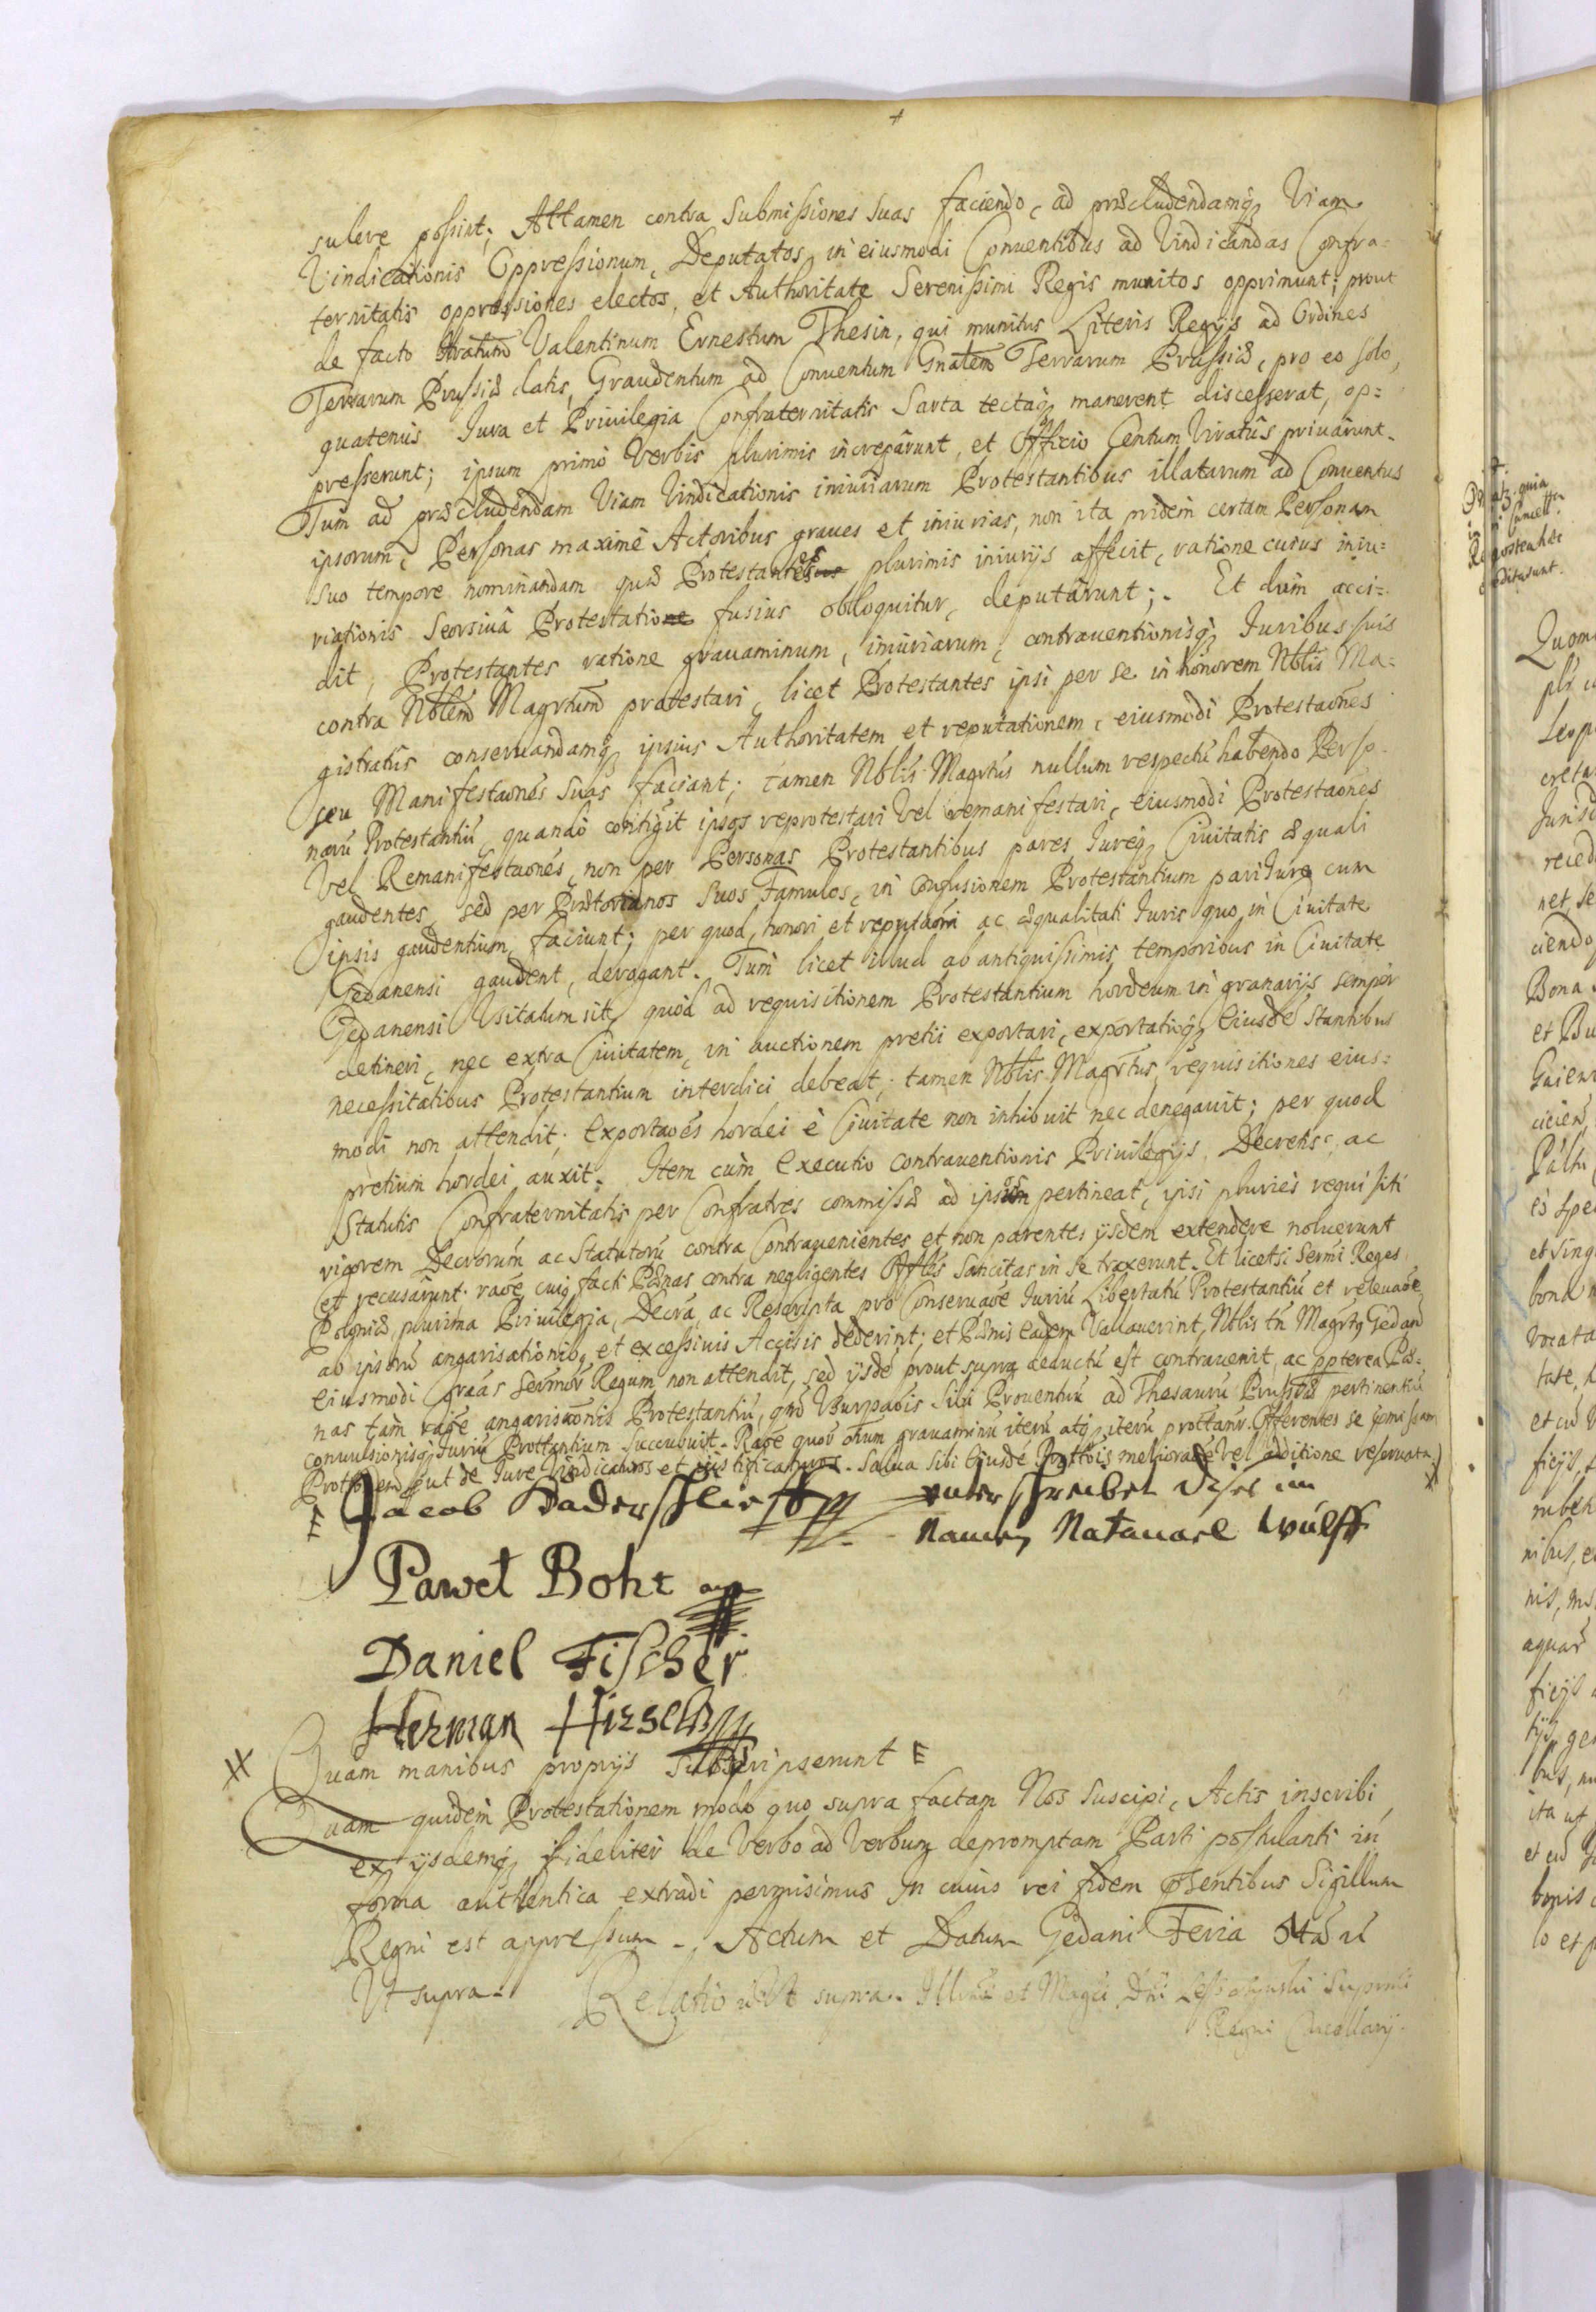 +
sulere possint; Attamen contra Submissiones suas faciendo, ad præcludendamq Viam
Vindicationis Oppressionum, Deputatos in eiusmodi Conuentibus ad Vindicandas Confra=
ternitatis oppressiones electos, et Authoritate Serenissimi Regis munitos opprimunt; prout
de facto Valentinum Ernestum Thesin, qui munitus Literis Regÿs ad Ordines
Terrarum Prussiæ datis, Graudentum ad Conuentum Gnãlem Terrarum Prussiæ, pro eo solo,
quatenus Jura et Priuilegia Confraternitatis Sarta tectaq manerent discesserat, op=
presserunt; ipsum primò Verbis plurimis increpârunt, et Officio Centum Viratûs priuârunt.
Tum ad præcludendam Viam Vindicationis iniuriarum Protestantibus illatarum ad Conuentus
ipsorum, Personas maximè Actoribus graues et iniurias, non ita pridem certam Personam
suo tempore nominandam quæ Protestantes plurimis iniurÿs affecit, ratione cuius iniu=
riationis Seorsiua Protestatione fusius obloquitur, deputârunt; Et dum acci=
dit, Protestantes ratione grauaminum, iniuriarum, contrauentionisq Juribus suis
contra Nblẽm Magrtum̃ protestari, licet Protestantes ipsi per se in honorem Nblis Ma=
gistratûs conseruandamq ipsius Authoritatem et reputationem, eiusmodi Protestaões
seu Manifestaões suas faciant; tamen Nblis Magrtus nullum respectũ habendo Perso=
narũ Protestantiũ, quando contigit ipsos reprotestari Vel remanifestari, eiusmodi Protestaões
Vel Remanifestaões, non per Personas Protestantibus pares Jureq Ciuitatis æquali
gaudentes, sed per Prætorianos Suos Famulos, in Confusionem Protestantium pari Jure cum
ipsis gaudentium, faciunt; per quod, honori et reputaõni ac æqualitati Juris quo in Ciuitate
Gedanensi gaudent, derogant. Tum licet illud ab antiquissimis temporibus in Ciuitate
Gedanensi Vsitatum sit, quòd ad requisitionem Protestantium hordeum in granarÿs semper
detineri, nec extra Ciuitatem, in auctionem pretii exportari, exportatioq eiusdẽ stantibus
necessitatibus Protestantium interdici debeat; tamen Nblis Magrtus, requisitiones eius=
modi non attendit; Exportaões hordei è Ciuitate non inhibuit nec denegauit; per quod
pretium hordei auxit. Item cùm Executio contrauentionis Priuilegÿs, Decretis, ac
Statutis Confraternitatis per Confratres commissæ ad ipsum pertineat, ipsi pluriès requisiti
rigorem Decretorũ ac Statutorũ contra Contrauenientes et non parentes ÿsdem extendere noluerunt
et recusârunt. raõe cuiq facti Pœnas contra negligentes Offles sancitas in se traxerunt. Et licet Sermi Reges
Poloniæ, plurima Priuilegia, Decra, ac Rescripta pro Conseruaõe Juriũ Libertatũ Protestantiũ et releuaõe
ab ipsorũ angarisationibq et excessiuis Accisis dederint, et Pœnis eadem Vallauerint, Nblis tñ Magrtq Gedan̄
eiusmodi graas Sermor̃ Regum, non attendit, sed ÿsdẽ prout supra deductũ est contrauenit, ac ppterea Pœ=
nas tam raõe angarisaõnis Protestantiũ, qm̃ Vsurpaõis Sibi Prouentuũ ad Thesaurũ Prussiæ pertinentiũ
conuulsionisq Juriũ Prottantium Succubuit. Raõe quor̃ oĩum grauaminũ iterũ atq iterũ prottantr̃. Offerentes se pmissam
Prottõem put de Jure Vindicaturos et iustificaturos. Salua sibi eiusdẽ Prottõis melioraõe Vel additione reseruata.
E Jacob Daderschlieff
unterschreibet dises im
Namen Natanael Wulff
Paweł Boht
Daniel Fischer
Herman Hirsch
Quam manibus propriÿs Subscripserunt E
Quam quidem Protestationem modo quo supra factam Nos Suscipi, Actis inscribi,
ex ÿsdemq fideliter de Verbo ad Verbum depromptam Parti postulanti in
forma authentica extradi permisimus. In cuius rei fidem psentibus Sigillum
Regni est appressum. Actum et Datum Gedani Feria
Vt supra.
Relatio ut supra. Illmi et Magci Dni Supmi
Regni Cancellarÿ.